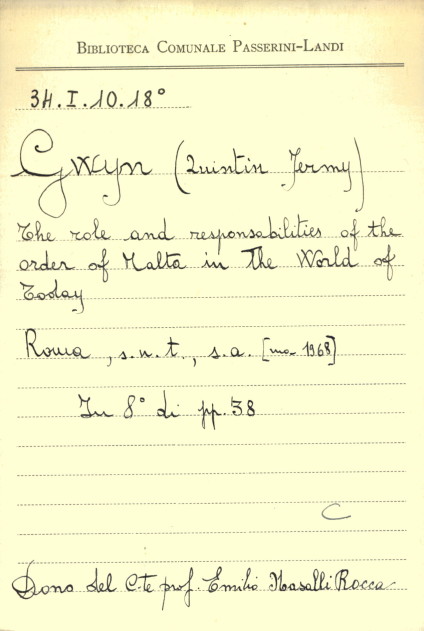 BIBLIOTECA COMUNALE PASSERINI-LANDI
34.I.10.18°
Gwyn (Quintin Jermy)
The role and responsabilities of the
order of Malta in the World of
Today
Roma, s.n.t., s.a. [ma 1968]
In 8° di pp. 38
C
Dono del C.te prof. Emilio Nasalli Rocca